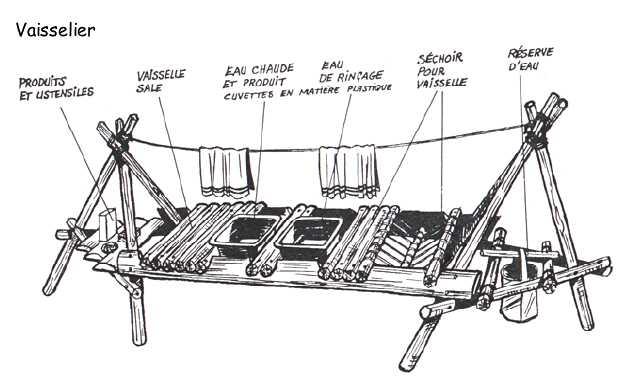 Vaisselier
PRODUITS
ET USTENSILES
VAISSELLE
SALE
EAU CHAUDE
ET PRODUIT
CUVETTES EN MATIÈRE PLASTIQUE
EAU
DE RINÇAGE
SÉCHOIR
POUR
VAISSELLE
RÉSERVE
D'EAU